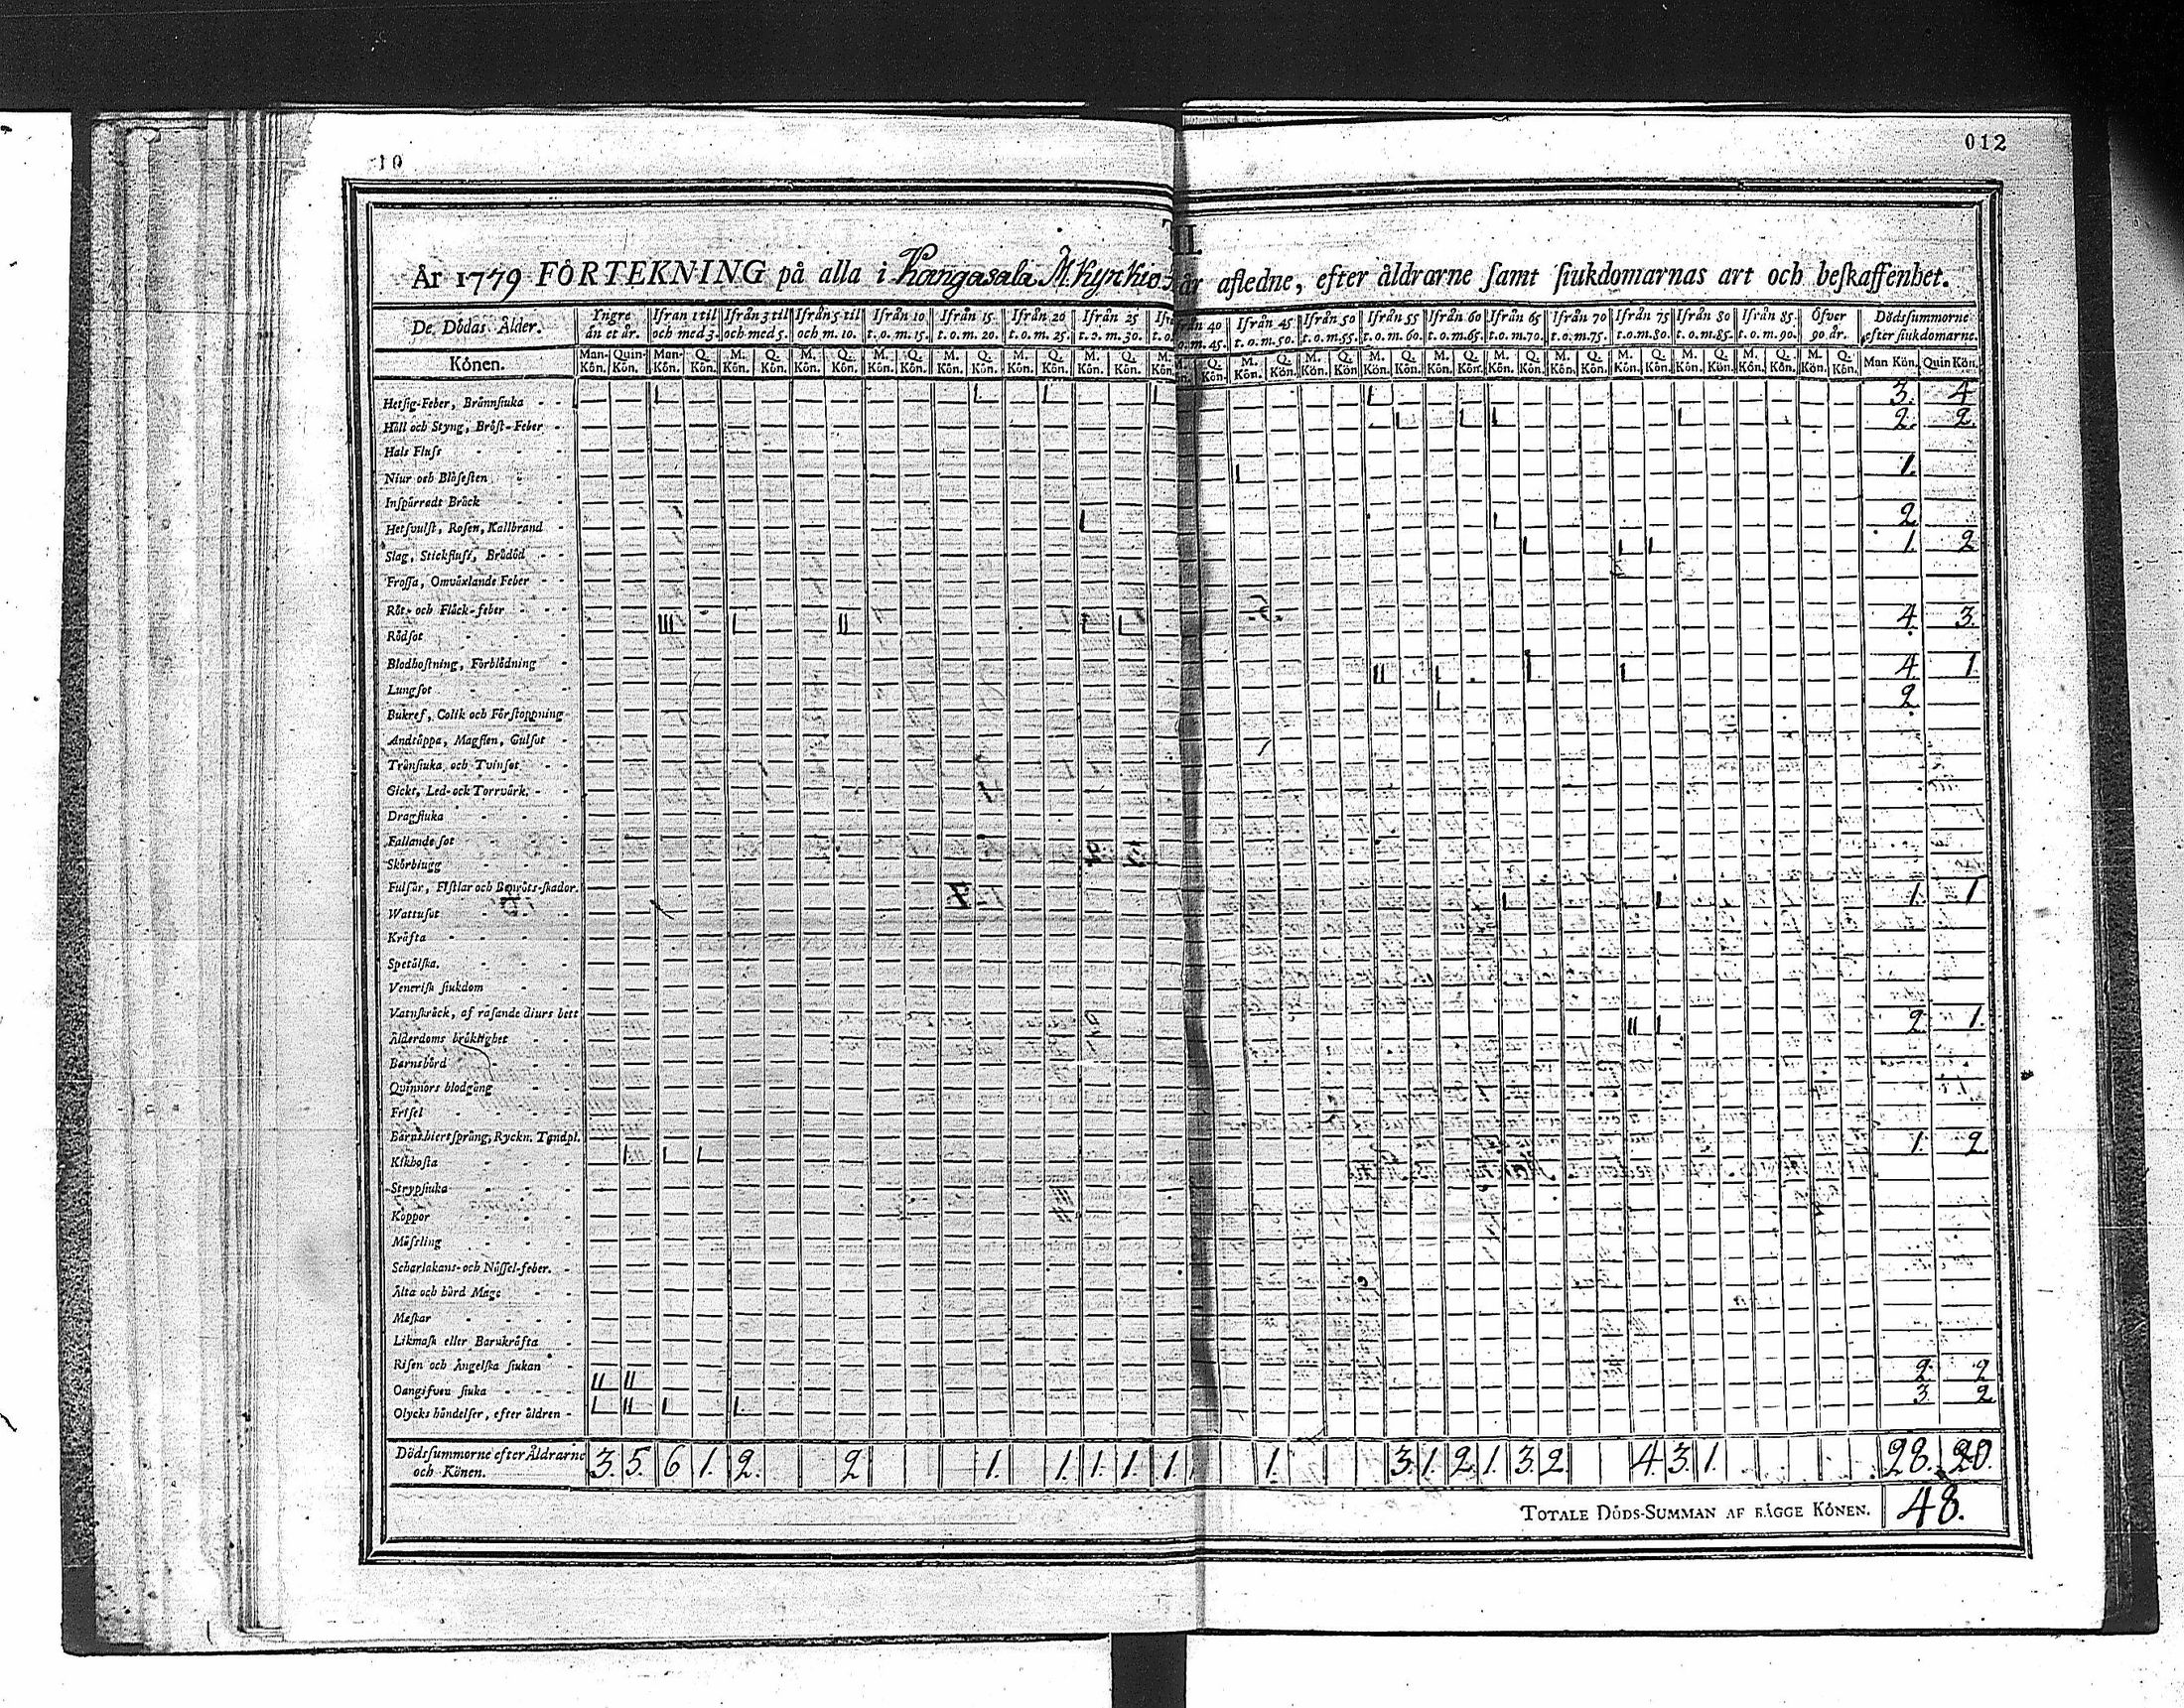 10
012
II.
År 1779 FÖRTEKNING på alla i Kangasala M. Kyrkio är afledne, efter åldrarne samt siukdomarnas art och beskaffenhet.
De Dödas Ålder. Yngre än et år. Ifrån 1 til och med 3. Ifrån 3 til och med 5. Ifrån 5 til och m. 10. Ifrån 10 t.o.m. 15. Ifrån 15 t.o.m. 20. Ifrån 20 t.o.m. 25. Ifrån 25 t.o.m. 30. från 40 o.m. 45. Ifrån 45 t.o.m. 50. Ifrån 50 t.o.m. 55. Ifrån 55 t.o.m. 60. Ifrån 60 t.o.m. 65. Ifrån 65 t.o.m. 70. Ifrån 70 t.o.m. 75. Ifrån 75 t.o.m. 80. Ifrån 80 t.o.m. 85. Ifrån 85 t.o.m. 90. Öfver 90 år. Dödssummorne efter siukdomarne.
Könen. Man-Kön. Quin-Kön. Man-Kön. Q. Kön. M. Kön. Q. Kön. M. Kön. Q. Kön. M. Kön. Q. Kön. M. Kön. Q. Kön. M. Kön. Q. Kön. M. Kön. Q. Kön. M. Kön. M. Kön. Q. Kön. M. Kön. Q. Kön. M. Kön. Q. Kön. M. Kön. Q. Kön. M. Kön. Q. Kön. M. Kön. Q. Kön. M. Kön. Q. Kön. M. Kön. Q. Kön. M. Kön. Q. Kön. M. Kön. Q. Kön. M. Kön. Q. Kön. Man Kön. Quin Kön.
Hetsig-Feber, Brännsiuka 3. 4
Håll och Styng, Bröst-Feber 2. 2.
Hals Fluss
Niur och Blåsesten 1.
Inspärradt Bråck
Hetsvulst, Rosen, Kallbrand 2
Slag, Stickfluss, Brådöd 1. 2
Frossa, Omväxlande Feber
Röt- och Fläck-feber
Rödsot 4. 3.
Blodhostning, Förblödning
Lungsot 4. 1.
Bukref, Colik och Förstoppning 2.
Andtäppa, Magsten, Gulsot
Trånsiuka och Tvinsot
Gickt, Led- och Torrvärk.
Dragsiuka
Fallande sot
Skörbiugg
Fulsår, Fistlar och Benröts-skador.
Wattusot 1. 1
Kräfta
Spetälska.
Venerisk siukdom
Vatuskräck, af rasande diurs bett
Ålderdoms bräklighet 2. 1.
Barnsbörd
Quinnors blodgång
Frisel
Barns hiertsprång, Ryckn. Tandpl.
Kikhosta 1. 2
Strypsiuka
Koppor
Mässling
Scharlakans- och Nässel-feber.
Älta och hård Mage
Maskar
Likmask eller Barnkräfta
Risen och Ängelska siukan
Oangifven siuka 2. 2
Olycks händelser, efter åldren 3. 2
Dödssummorne efter Åldrarne och Könen. 3. 5. 6 1. 2. 2 1. 1. 1. 1. 1. 1. 3. 1. 2. 1. 3. 2. 4. 3. 1. 28. 20.
TOTALE DÖDS-SUMMAN AF BÄGGE KÖNEN. 48.